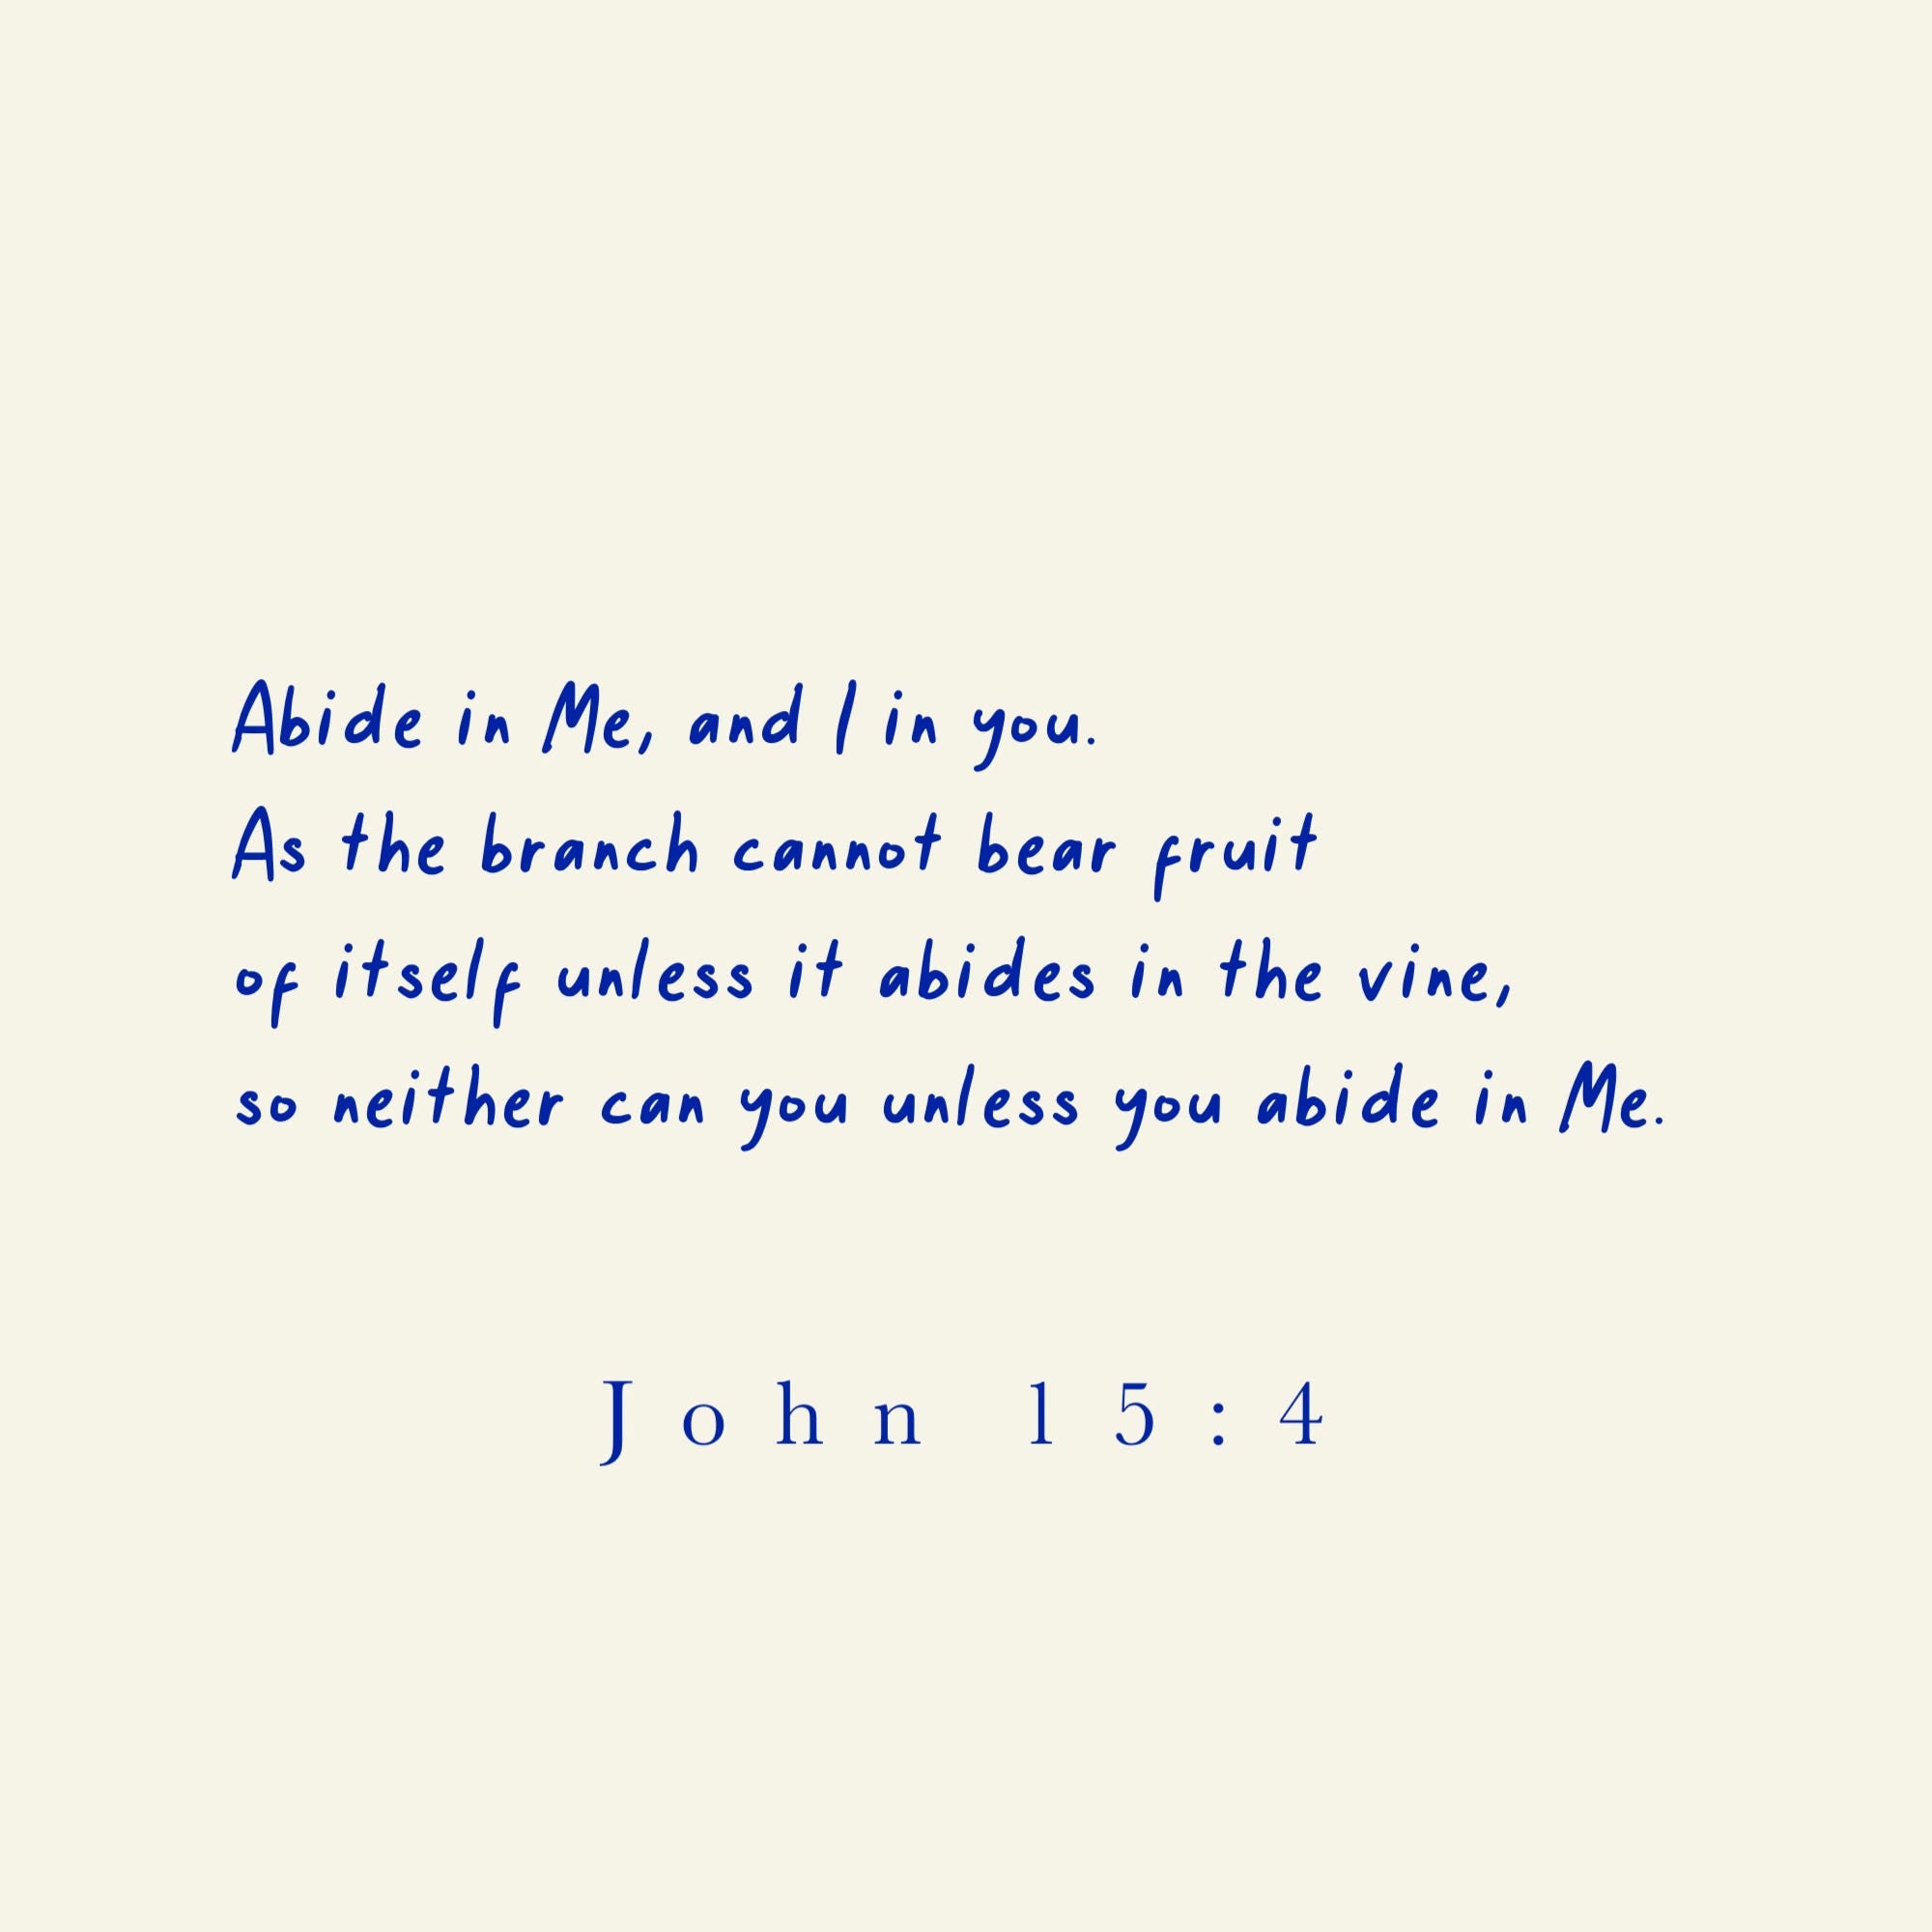 Abide in Me, and I in you.
As the branch cannot bear fruit
of itself unless it abides in the vine,
so neither can you unless you abide in Me.
John 15:4